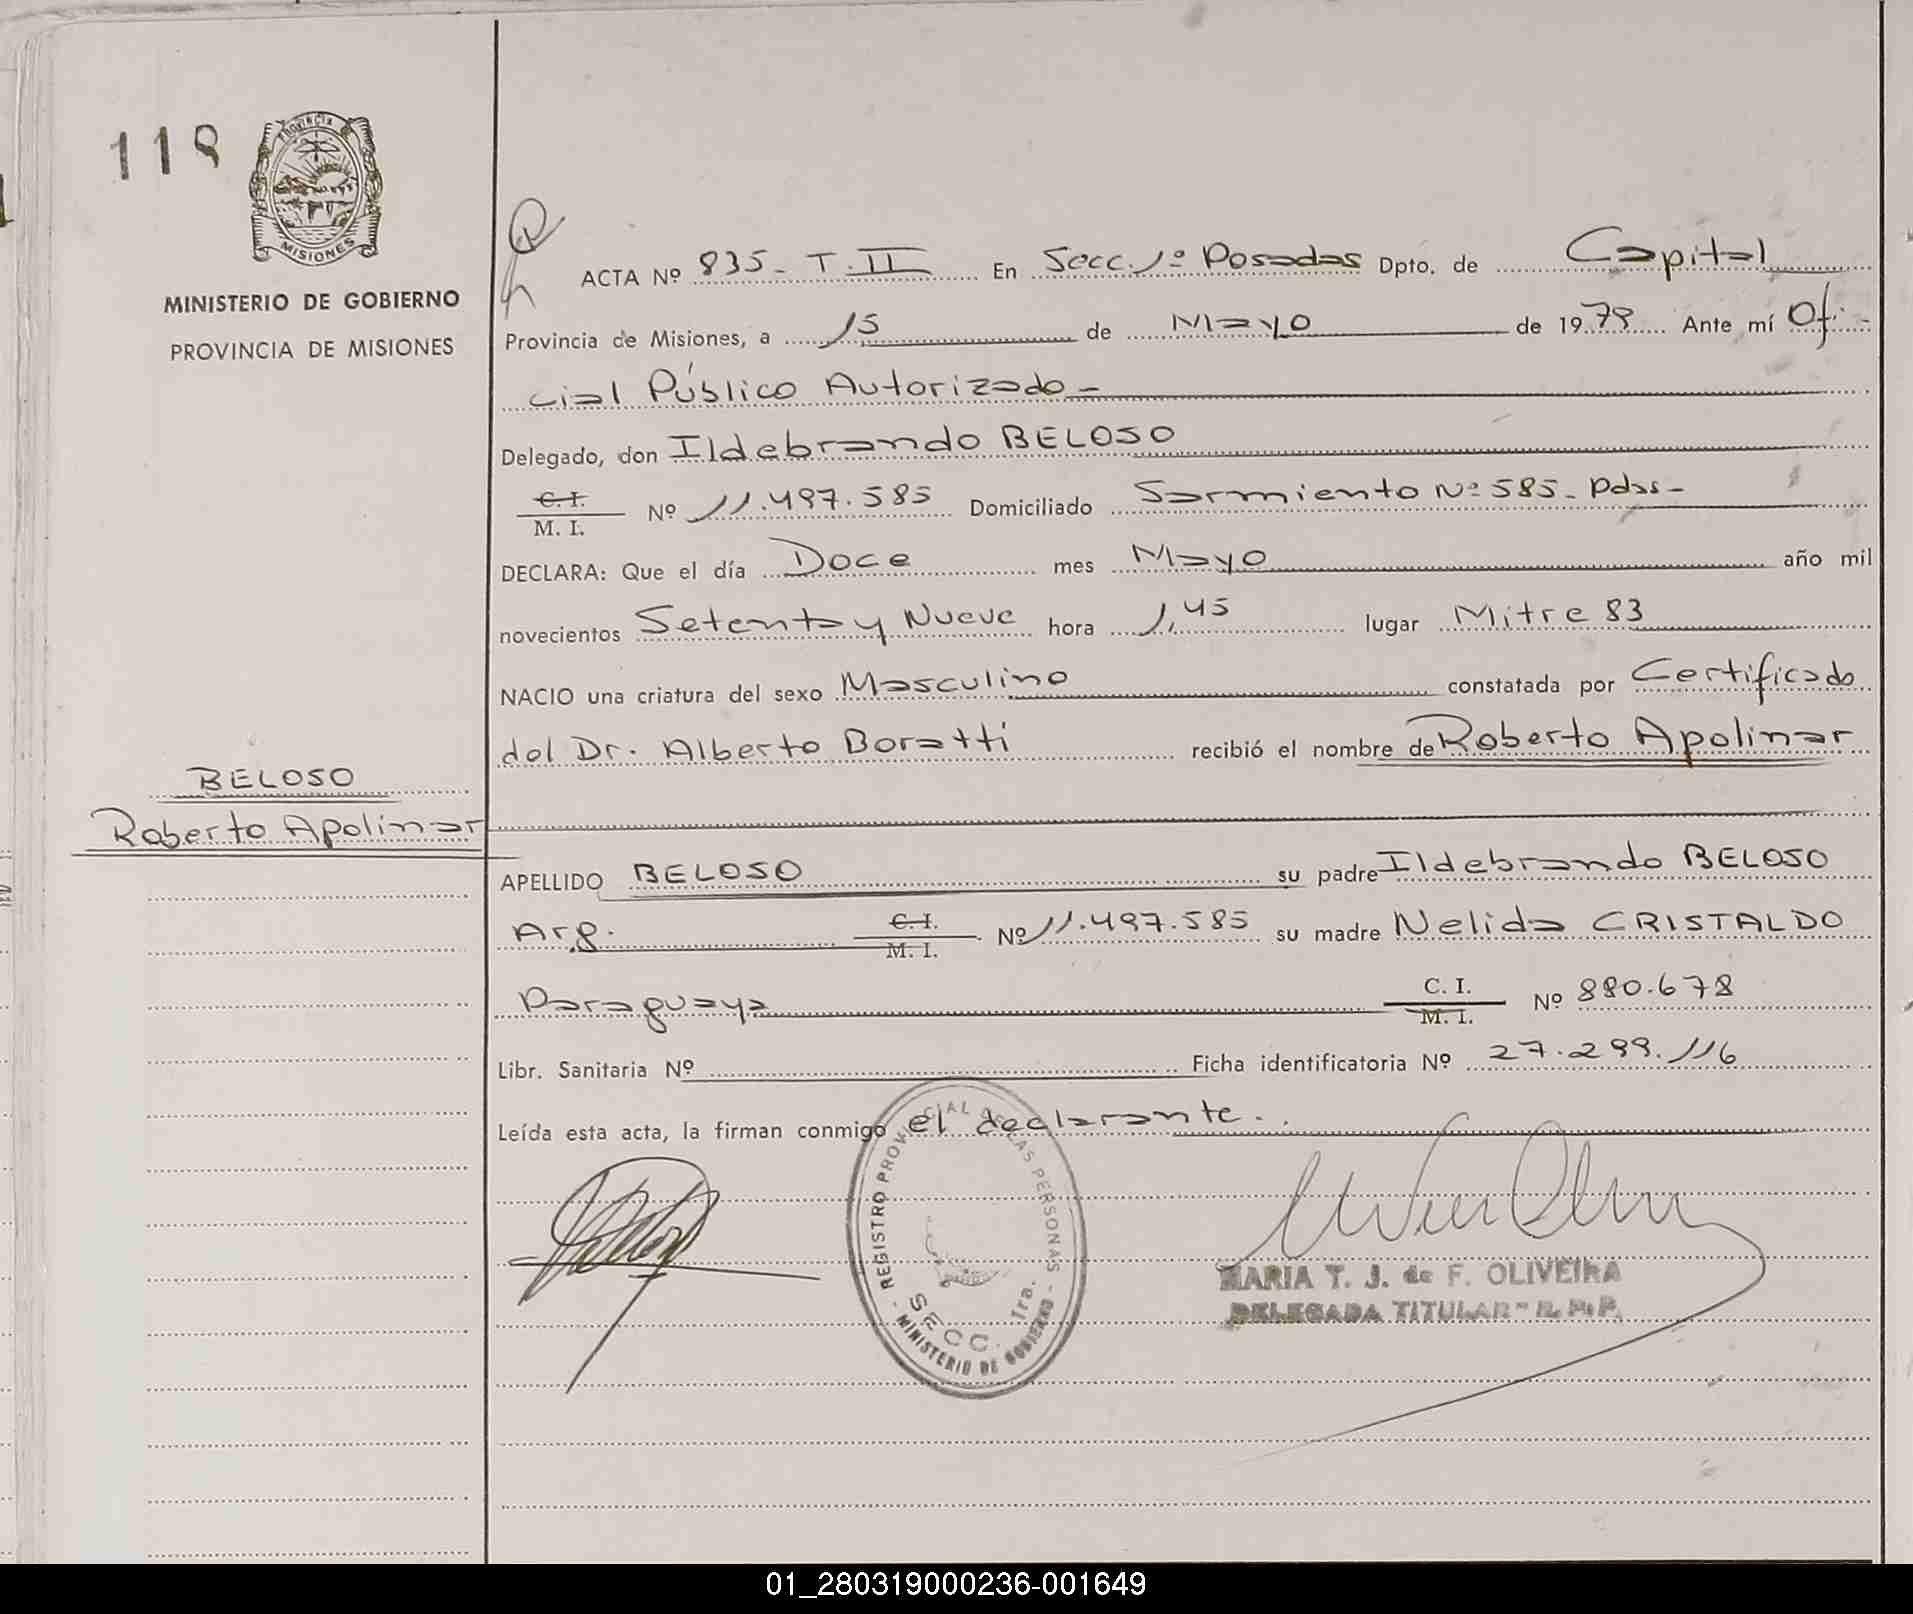 118
PROVINCIA DE
MISIONES
MINISTERIO DE GOBIERNO
PROVINCIA DE MISIONES
ACTA Nº 835- T. II En Secc. 1º Posadas Dpto. de Capital
Provincia de Misiones, a 15 de Mayo de 1979 Ante mí Ofi-
cial Público Autorizado-
Delegado, don Ildebrando BELOSO
C. I.
M. I. Nº 11.497.585 Domiciliado Sarmiento Nº 585- Pdas-
DECLARA: Que el día Doce mes Mayo año mil
novecientos Setenta y Nueve hora 1,45 lugar Mitre 83
NACIO una criatura del sexo Masculino constatada por Certificado
del Dr. Alberto Boratti recibió el nombre de Roberto Apolinar
BELOSO
Roberto Apolinar
APELLIDO BELOSO su padre Ildebrando BELOSO
Arg. C. I. M. I. Nº 11.497.585 su madre Nelida CRISTALDO
Paraguaya C. I. M. I. Nº 880.678
Libr. Sanitaria Nº Ficha identificatoria Nº 27.299.116
Leída esta acta, la firman conmigo el declarante.
- REGISTRO PROVINCIAL DE LAS PERSONAS -
SECC. 1ra.
MINISTERIO DE GOBIERNO
MARIA T. J. de F. OLIVEIRA
DELEGADA TITULAR - R. P. P.
01_280319000236-001649